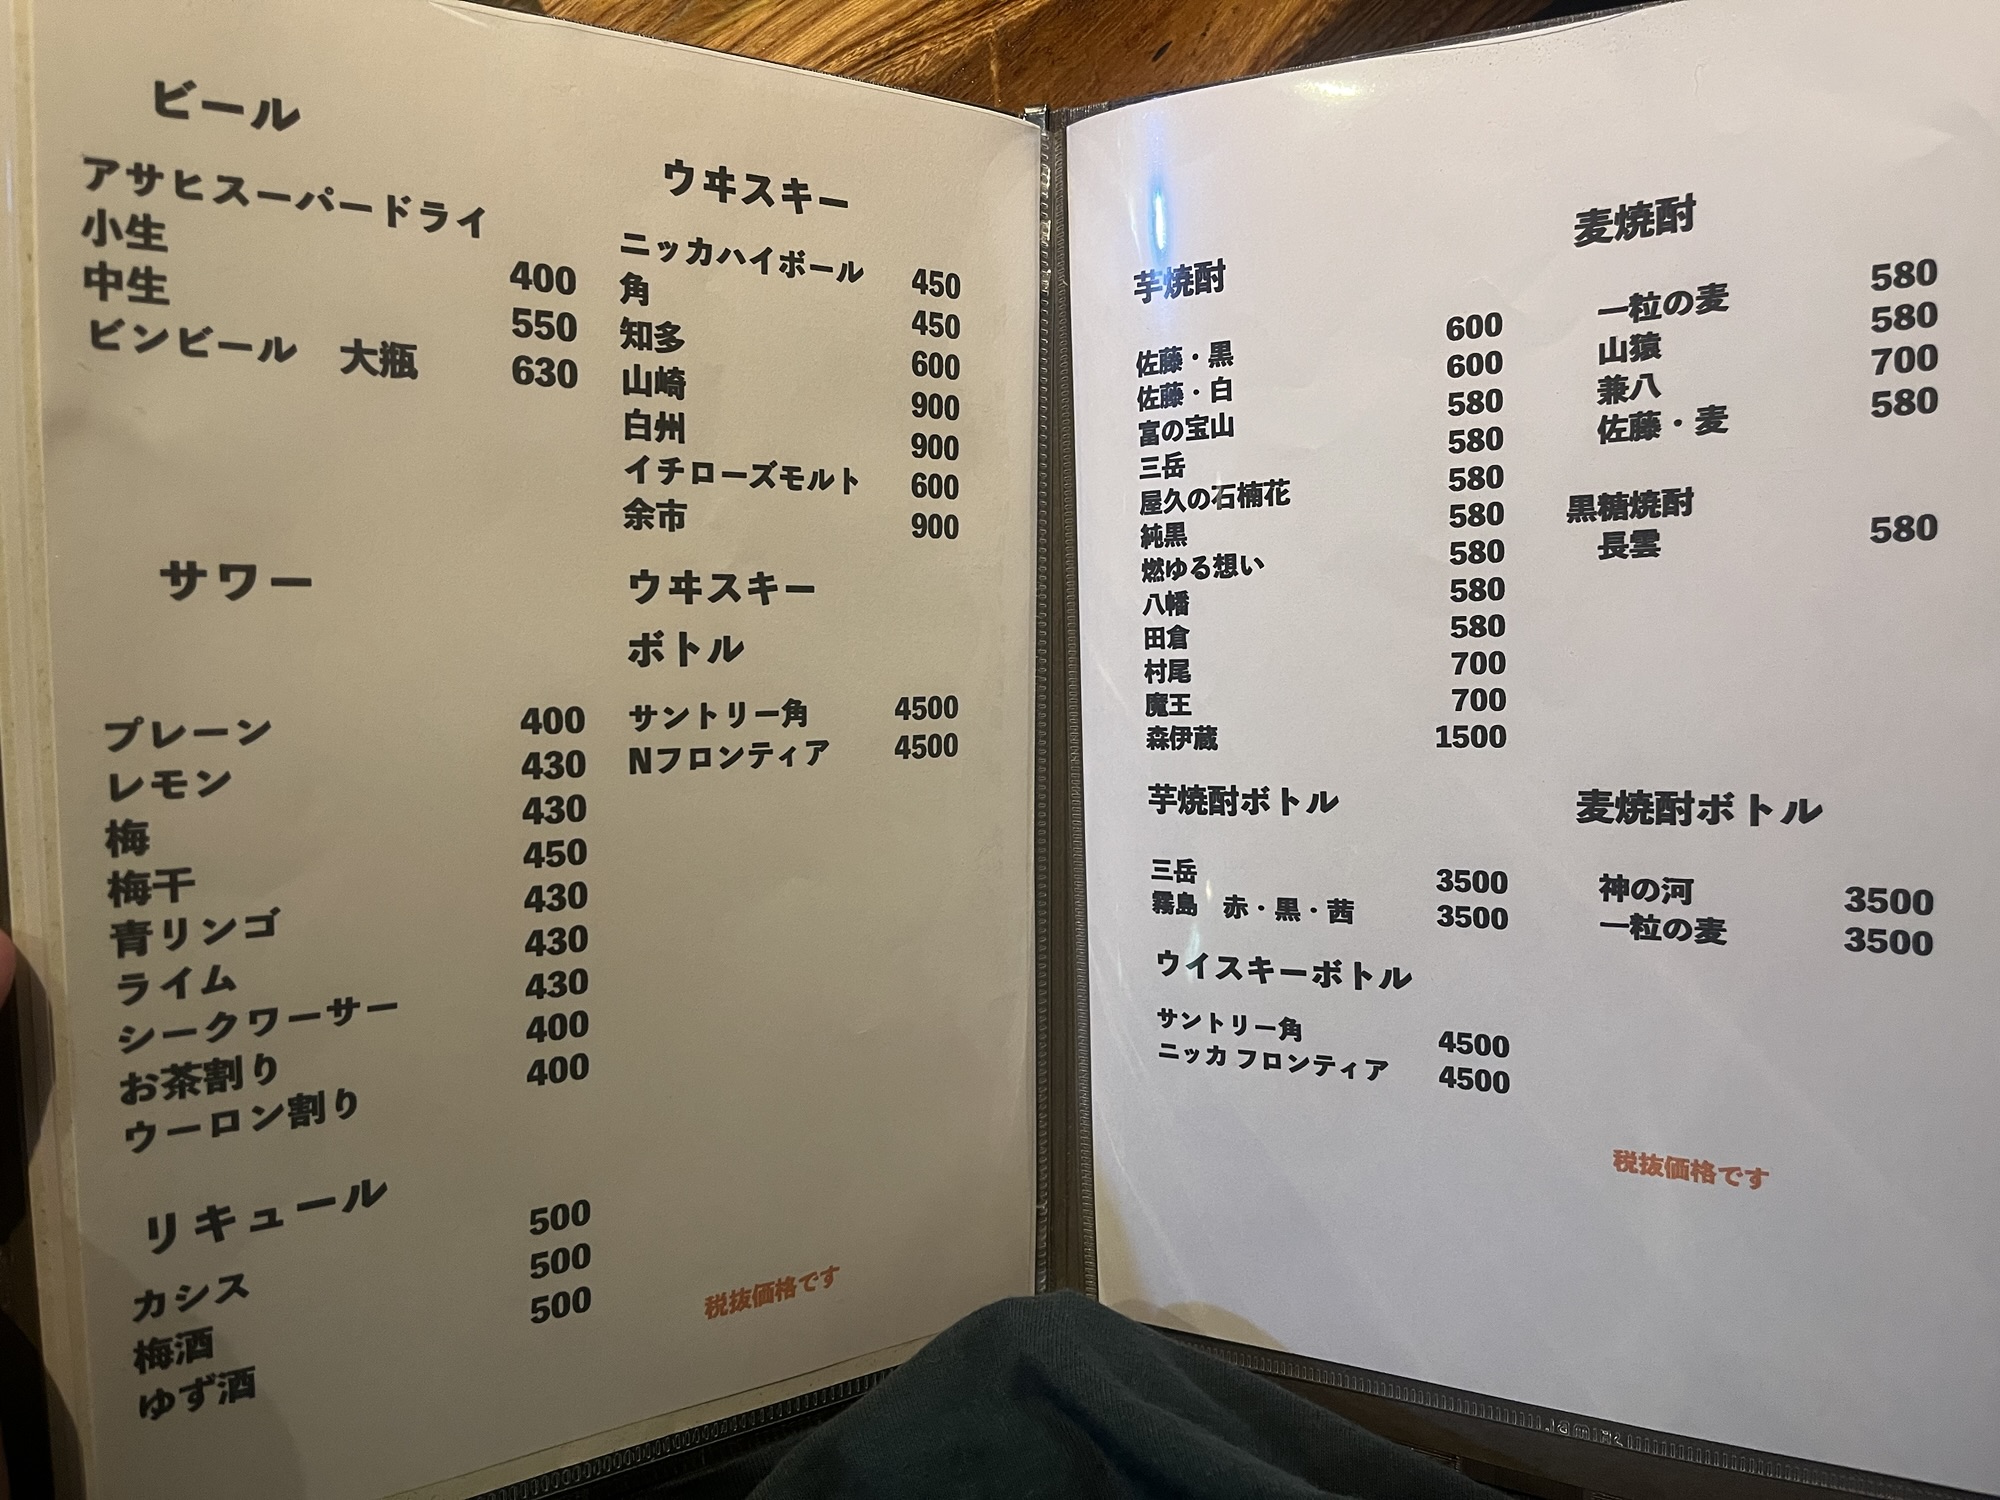 ビール
アサヒスーパードライ
小生 400
中生 550
ビンビール 大瓶 630
サワー
プレーン 400
レモン 430
梅 430
梅干 450
青リンゴ 430
ライム 430
シークワーサー 430
お茶割り 400
ウーロン割り 400
リキュール
カシス 500
梅酒 500
ゆず酒 500
ウヰスキー
ニッカハイボール 450
角 450
知多 600
山崎 900
白州 900
イチローズモルト 600
余市 900
ウヰスキー
ボトル
サントリー角 4500
Nフロンティア 4500
税抜価格です
芋焼酎
佐藤・黒 600
佐藤・白 600
富の宝山 580
三岳 580
屋久の石楠花 580
純黒 580
燃ゆる想い 580
八幡 580
田倉 580
村尾 700
魔王 700
森伊蔵 1500
芋焼酎ボトル
三岳 3500
霧島 赤・黒・茜 3500
ウイスキーボトル
サントリー角 4500
ニッカ フロンティア 4500
麦焼酎
一粒の麦 580
山猿 580
兼八 700
佐藤・麦 580
黒糖焼酎
長雲 580
麦焼酎ボトル
神の河 3500
一粒の麦 3500
税抜価格です